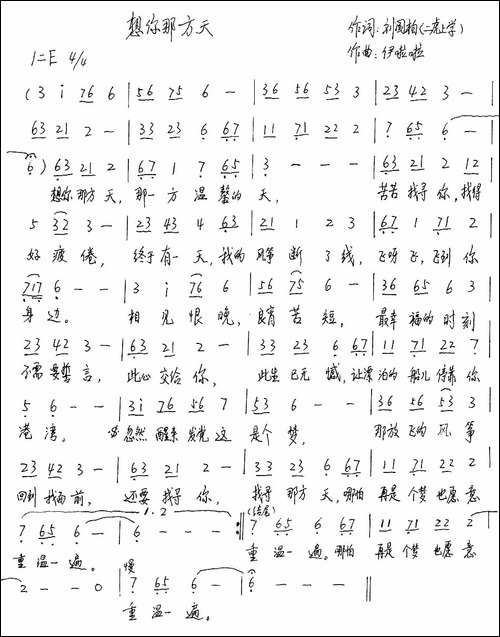 想你那方天
作词:刘国柏(二虎上学)
作曲:伊啦啦
1=E 4/4
(3 i 76 6 | 56 75 6 - | 36 56 53 3 | 23 42 3 - |
63 21 2 - | 33 23 6 67 | 11 71 22 2 | 7 65 6 - |
6) 63 21 2 | 67 1 7 65 | 3 - - - | 63 21 2 12
想你那方天, 那一方温馨的天, 苦苦找寻你,找得
5 32 3 - | 23 43 4 63 | 21 1 2 3 | 67 1 71 2
好疲倦, 终于有一天,我的风筝断了线, 飞呀飞,飞到你
717 6 - - | 3 i 76 6 | 56 75 6 - | 36 65 6 3
身边。 相见恨晚, 良宵苦短, 最幸福的时刻
23 42 3 - | 63 21 2 - | 33 23 6 67 | 11 71 22 7
不需要誓言, 此心交给你, 此生已无憾,让漂泊的船儿停靠你
5 6 - - | 3i 76 56 7 | 53 6 - - | 36 56 53 3
港湾。 忽然醒来发觉这是个梦, 那放飞的风筝
23 42 3 - | 63 21 2 - | 33 23 6 67 | 11 71 22 2
回到我面前, 还要找寻你, 找寻那方天,哪怕再是个梦也愿意
1.2 (结尾)
7 65 6 - | 6 - - - :|| 7 65 6 67 | 11 71 22 2
重温一遍。 慢 重温一遍。哪怕再是个梦也愿意
2 - - 0 | 7 65 6 - | 6 - - - ||
重温一遍。